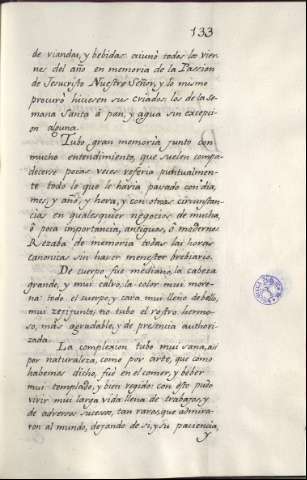 133
de viandas, y bebidas: aiunò todos los vier-
nes del año en memoria de la Passion
de Jesucristo Nuestro Señor, y lo mismo
procurò hiciesen sus criados, los de la Se-
mana Santa à pan, y agua sin excepci-
on alguna.
Tubo gran memoria junto con
mucho entendimiento, que suelen compa-
decerse pocas veces referia puntualmen-
te todo lo que le havia pasado con dia,
mes, y año, y hora, y con otras circunstan-
cias en qualesquier negocios de mucha,
ò poca importancia, antiguos, ò modernos
Rezaba de memoria todas las horas
canonicas sin haver menester brebiario.
De cuerpo fue mediano, la cabeza
grande, y mui calvo; la color mui more-
na: todo el cuerpo, y cara mui lleno de bello,
mui zejijunto; no tubo el rostro hermo-
so, mas agradable, y de presencia authori-
zada.
La compleccion tubo mui sana, asi
por naturaleza, como por arte, que como
habemos dicho, fuè en el comer, y beber
mui templado, y bien regido: con esto pudo
vivir mui larga vida llena de trabajos, y
de adversos sucesos, tan raros, que admira-
ron al mundo, dejando de si, y su paciencia,
y